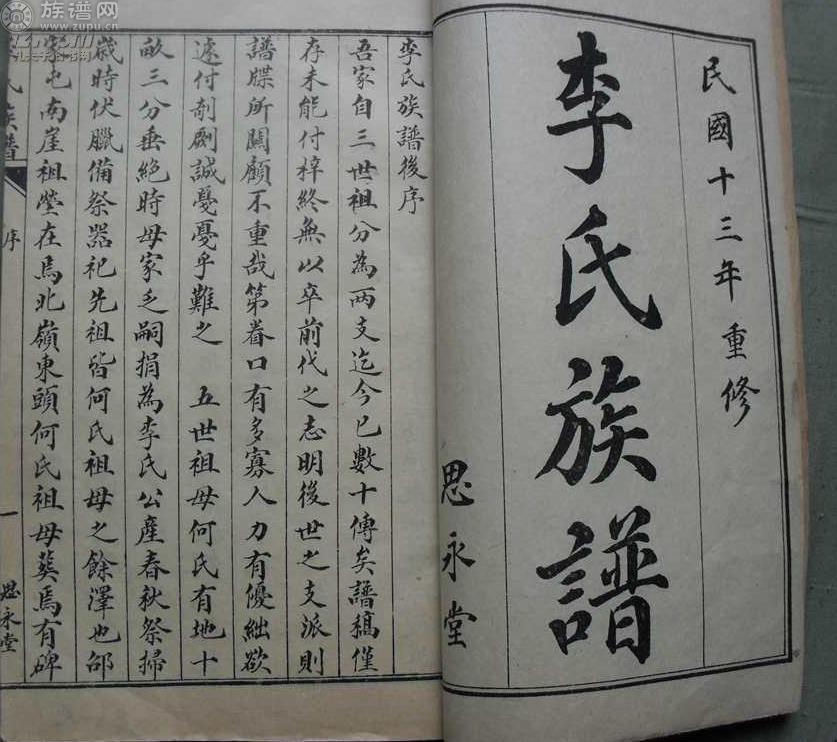 民國十三年重修
李氏族譜
思永堂
李氏族譜後序
吾家自三世祖分為兩支迄今已數十傳矣譜稿僅
存未能付梓終無以卒前代之志明後世之支派則
譜牒所關顧不重哉第眷口有多寡人力有優絀欲
遽付剞劂誠憂憂乎難之 五世祖母何氏有地十
畝三分垂絕時母家乏嗣捐為李氏公產春秋祭掃
歲時伏臘備祭器祀先祖皆何氏祖母之餘澤也邰
家屯南崖祖塋在焉北嶺東頭何氏祖母葬焉有碑
氏族譜
序
一
思永堂
族谱网
www.zupu.cn